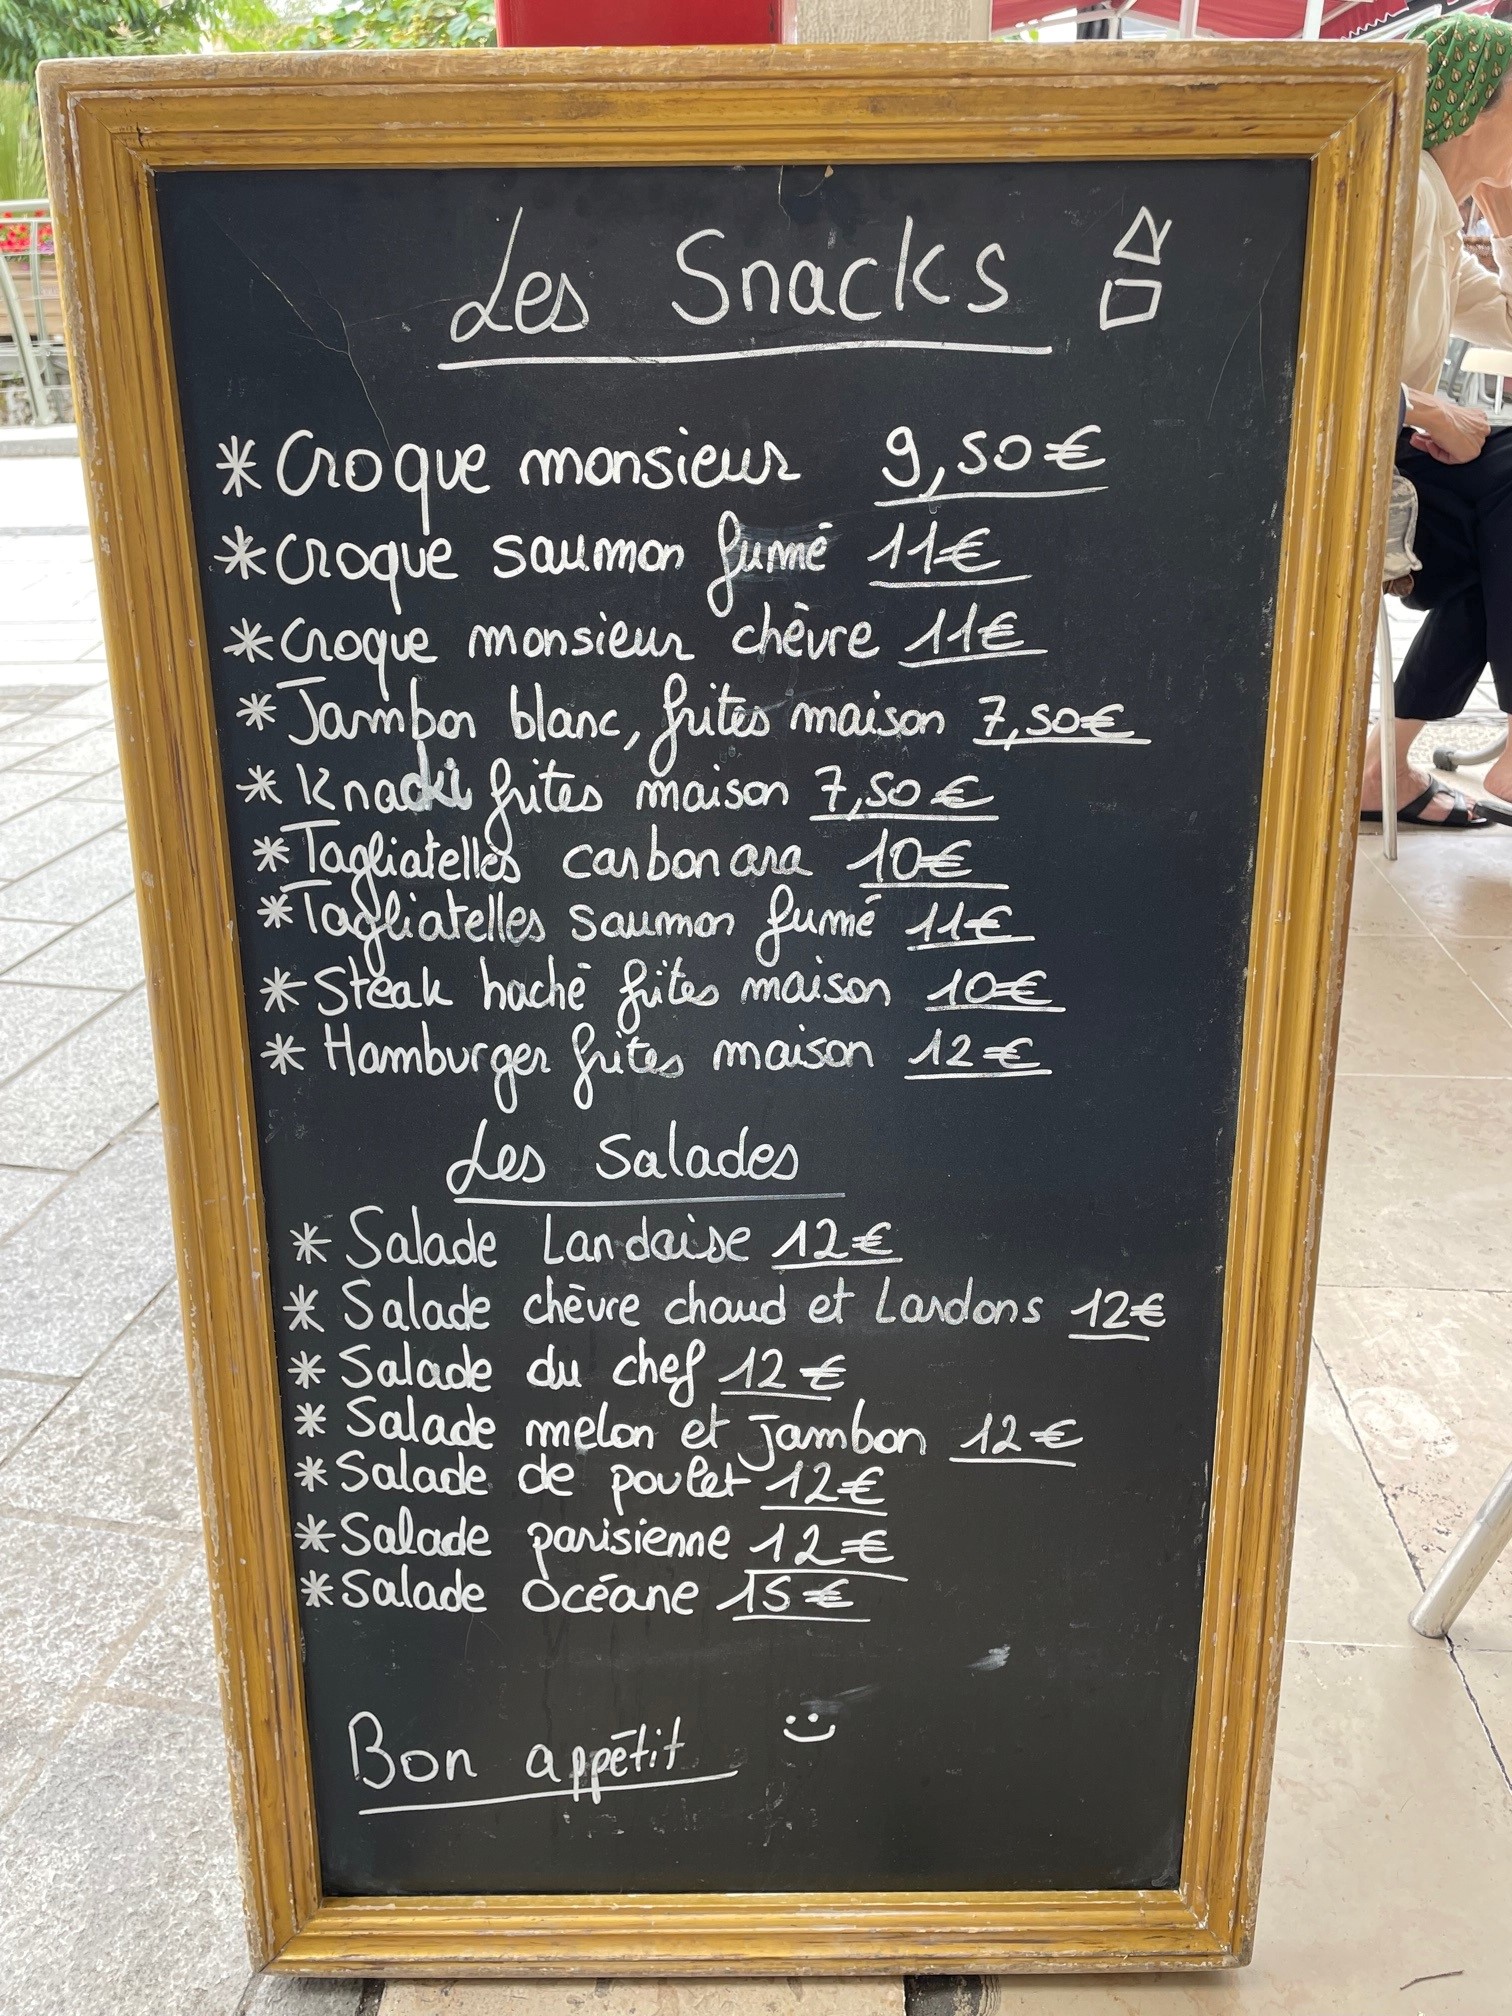 Les Snacks
* Croque monsieur 9,50€
* Croque saumon fumé 11€
* Croque monsieur chèvre 11€
* Jambon blanc, frites maison 7,50€
* Knacki frites maison 7,50€
* Tagliatelles carbonara 10€
* Tagliatelles saumon fumé 11€
* Steak haché frites maison 10€
* Hamburger frites maison 12€
Les Salades
* Salade Landaise 12€
* Salade chèvre chaud et Lardons 12€
* Salade du chef 12€
* Salade melon et jambon 12€
* Salade de poulet 12€
* Salade parisienne 12€
* Salade océane 15€
Bon appétit :)